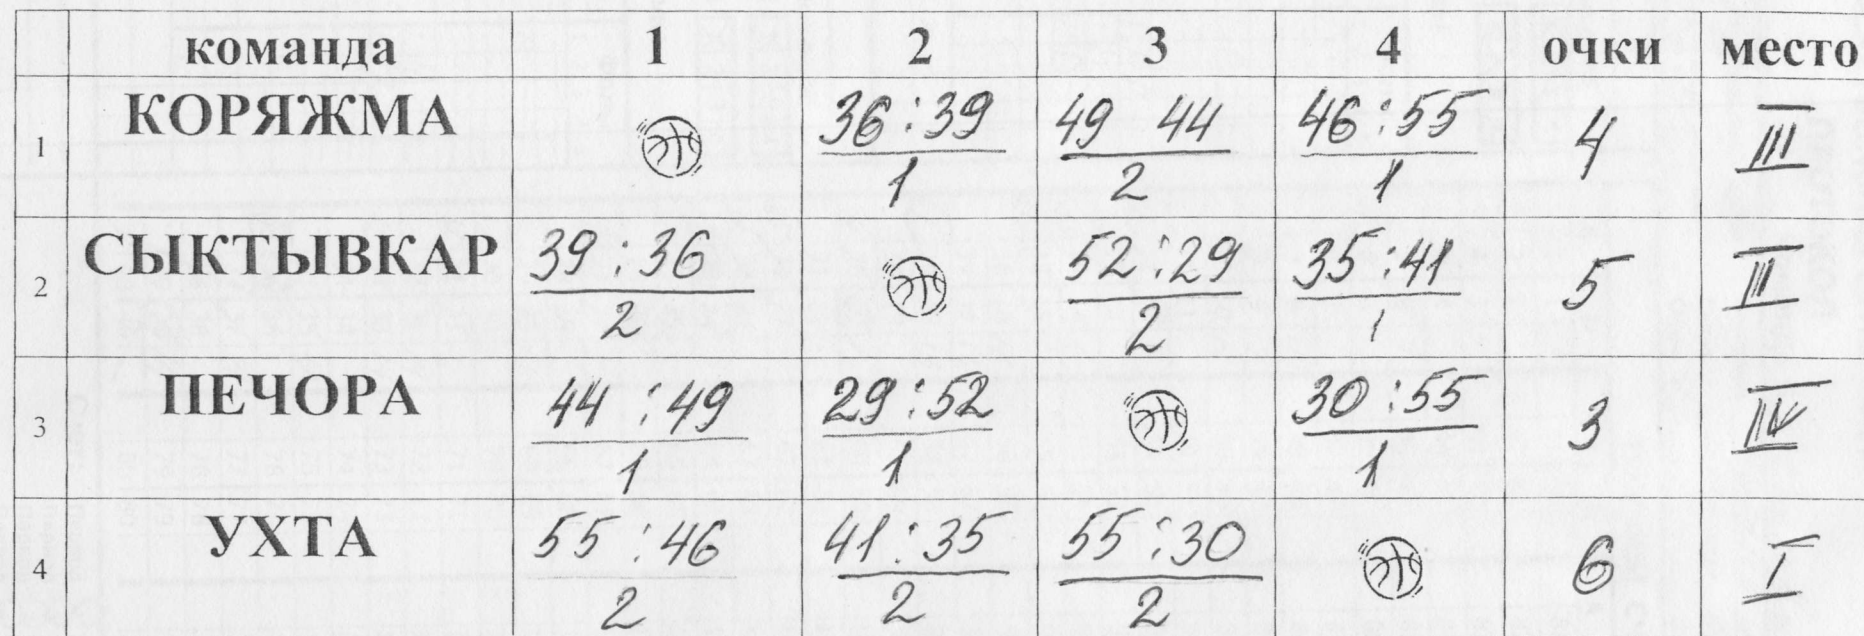 команда 1 2 3 4 очки место
1 КОРЯЖМА 36:39 49 44 46:55 4 III
1 2 1
2 СЫКТЫВКАР 39:36 52:29 35:41 5 II
2 2 1
3 ПЕЧОРА 44:49 29:52 30:55 3 IV
1 1 1
4 УХТА 55:46 41:35 55:30 6 I
2 2 2